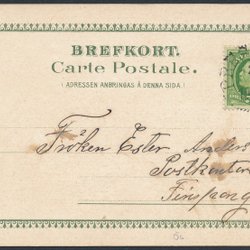 BREFKORT.
Carte Postale.
(ADRESSEN ANBRINGAS Å DENNA SIDA)
Fröken Ester Anders
Postkontor
Finspong